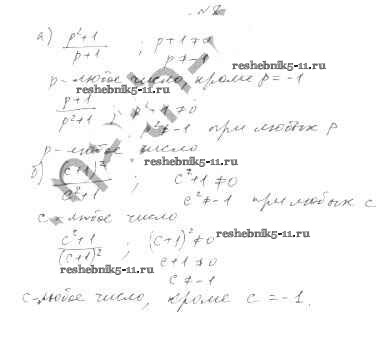 а) p²+1 / p+1 ; p+1≠0
p≠-1
reshebnik5-11.ru
p-любое число, кроме p=-1
reshebnik5-11.ru
p+1 / p²+1 ; p²+1≠0
p²≠-1 при любых p
p-любое число
reshebnik5-11.ru
б) (c+1)² / c²+1 ; c²+1≠0
c²≠-1 при любых c
c-любое число
c²+1 / (c+1)² ; (c+1)²≠0
reshebnik5-11.ru
c+1≠0
reshebnik5-11.ru
c≠-1
c-любое число, кроме c=-1.